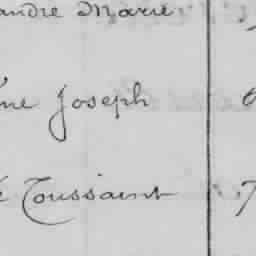 andre Marie
ne Joseph
é Toussaint 7